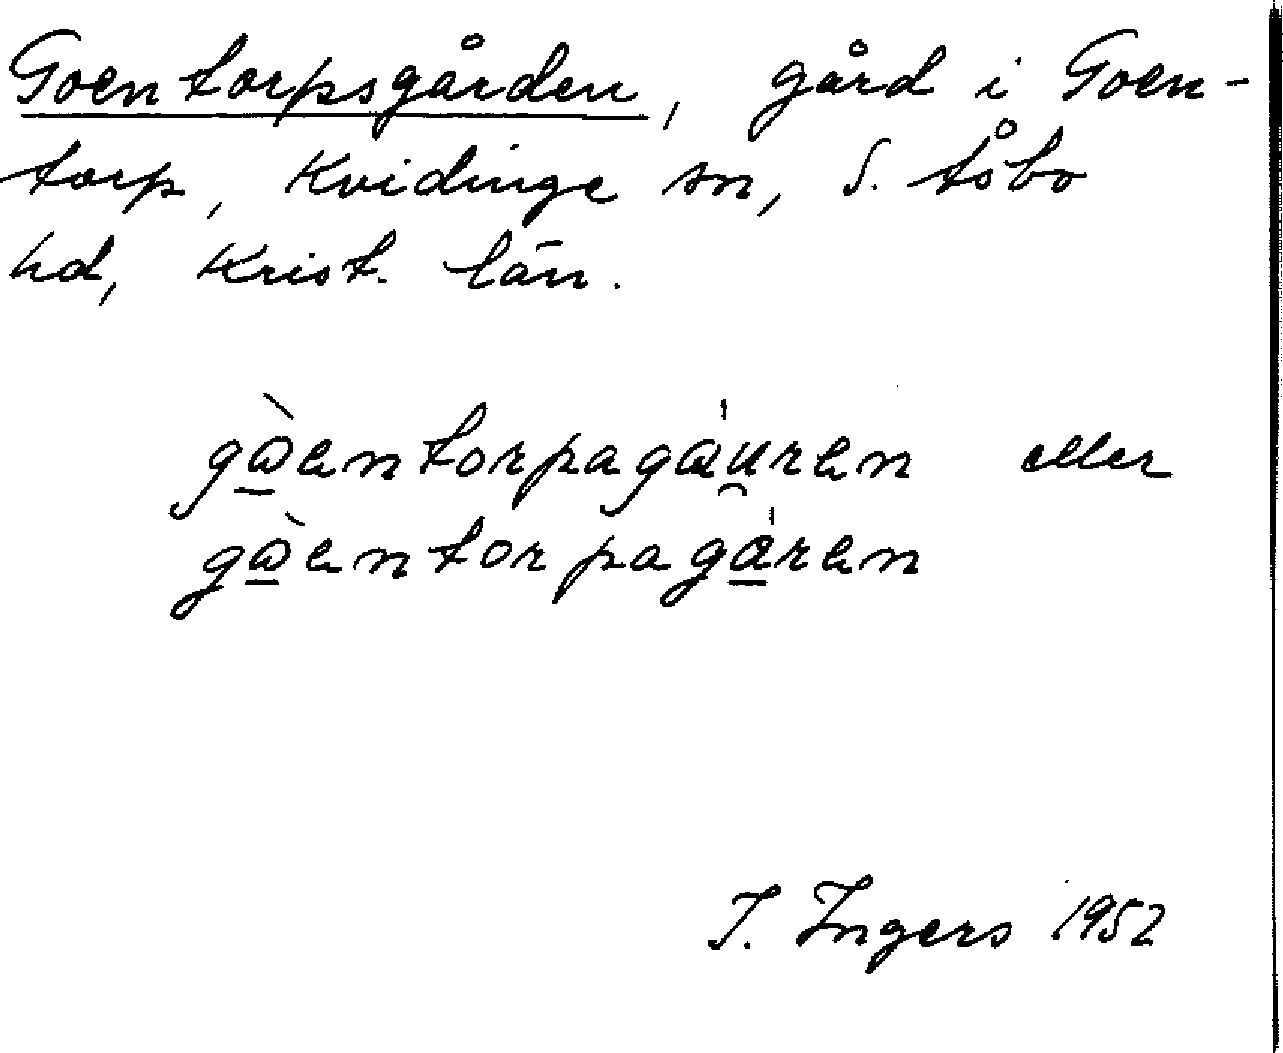 Goentorpsgården, gård i Goen-
torp, Kvidinge sn, S. Åsbo
hd, Krist. län.
gàentorpagáuren eller
gàentorpagáren
I. Ingers 1952